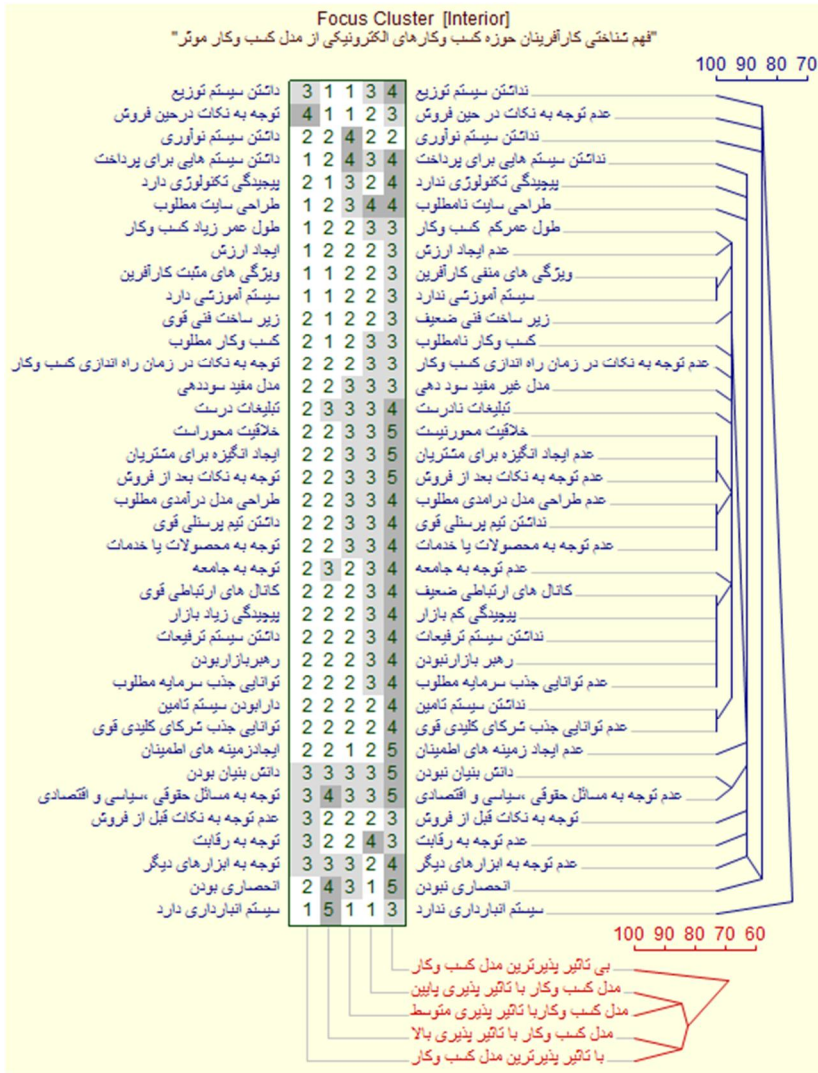 Focus Cluster [Interior]
"فهم شناختی کارآفرینان حوزه کسب وکارهای الکترونیکی از مدل کسب وکار موثر"
100 90 80 70
داشتن سیستم توزیع 3 1 1 3 4 نداشتن سیستم توزیع
توجه به نکات درحین فروش 4 1 1 2 3 عدم توجه به نکات در حین فروش
داشتن سیستم نوآوری 2 2 4 2 2 نداشتن سیستم نوآوری
داشتن سیستم هایی برای پرداخت 1 2 4 3 4 نداشتن سیستم هایی برای پرداخت
پیجیدگی تکنولوژی دارد 2 1 3 2 4 پیچیدگی تکنولوژی ندارد
طراحی سایت مطلوب 1 2 3 4 4 طراحی سایت نامطلوب
طول عمر زیاد کسب وکار 1 2 2 3 3 طول عمرکم کسب وکار
ایجاد ارزش 1 2 2 2 3 عدم ایجاد ارزش
ویژگی های مثبت کارآفرین 1 1 2 2 3 ویژگی های منفی کارآفرین
سیستم آموزشی دارد 1 1 2 2 3 سیستم آموزشی ندارد
زیر ساخت فنی قوی 2 1 2 2 3 زیر ساخت فنی ضعیف
کسب وکار مطلوب 2 1 2 3 3 کسب وکار نامطلوب
توجه به نکات در زمان راه اندازی کسب وکار 2 2 2 3 3 عدم توجه به نکات در زمان راه اندازی کسب وکار
مدل مفید سوددهی 2 2 3 3 3 مدل غیر مفید سود دهی
تبلیغات درست 2 3 3 3 4 تبلیغات نادرست
خلاقیت محوراست 2 2 3 3 5 خلاقیت محورنیست
ایجاد انگیزه برای مشتریان 2 2 3 3 5 عدم ایجاد انگیزه برای مشتریان
توجه به نکات بعد از فروش 2 2 3 3 5 عدم توجه به نکات بعد از فروش
طراحی مدل درآمدی مطلوب 2 2 3 3 4 عدم طراحی مدل درامدی مطلوب
داشتن تیم پرسنلی قوی 2 2 3 3 4 نداشتن تیم پرسنلی قوی
توجه به محصولات یا خدمات 2 2 3 3 4 عدم توجه به محصولات یا خدمات
توجه به جامعه 2 3 2 3 4 عدم توجه به جامعه
کانال های ارتباطی قوی 2 2 2 3 4 کانال های ارتباطی ضعیف
پیچیدگی زیاد بازار 2 2 2 3 4 پیچیدگی کم بازار
داشتن سیستم ترفیعات 2 2 2 3 4 نداشتن سیستم ترفیعات
رهبربازاربودن 2 2 2 3 4 رهبر بازارنبودن
توانایی جذب سرمایه مطلوب 2 2 2 3 4 عدم توانایی جذب سرمایه مطلوب
دارابودن سیستم تامین 2 2 2 2 4 نداشتن سیستم تامین
توانایی جذب شرکای کلیدی قوی 2 2 2 2 4 عدم توانایی جذب شرکای کلیدی قوی
ایجادزمینه های اطمینان 2 2 1 2 5 عدم ایجاد زمینه های اطمینان
دانش بنیان بودن 3 3 3 3 5 دانش بنیان نبودن
توجه به مسائل حقوقی ،سیاسی و اقتصادی 3 4 3 3 5 عدم توجه به مسائل حقوقی ،سیاسی و اقتصادی
عدم توجه به نکات قبل از فروش 3 2 2 2 3 توجه به نکات قبل از فروش
توجه به رقابت 3 2 2 4 3 عدم توجه به رقابت
توجه به ابزارهای دیگر 3 3 3 2 4 عدم توجه به ابزارهای دیگر
انحصاری بودن 2 4 3 1 5 انحصاری نبودن
سیستم انبارداری دارد 1 5 1 1 3 سیستم انبارداری ندارد
100 90 80 70 60
بی تاثیر پذیرترین مدل کسب وکار
مدل کسب وکار با تاثیر پذیری پایین
مدل کسب وکاربا تاثیر پذیری متوسط
مدل کسب وکار با تاثیر پذیری بالا
با تاثیر پذیرترین مدل کسب وکار